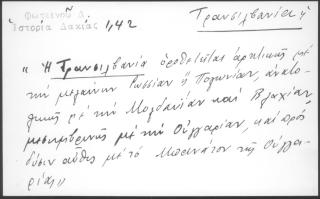 Φωτεινοῦ Δ.
Ἱστορία Δακίας 1,42
Τρανσιλβανία ἡ
"Ἡ Τρανσιλβανία ὁροθετεῖται ἀρκτικῶς μὲ
τὴν μεγάλην Ρωσσίαν ἢ Πολωνίαν, ἀνατο-
λικῶς μὲ τὴν Μολδαυίαν καὶ Βλαχίαν,
μεσημβρινῶς μὲ τὴν Οὐγγαρίαν, καὶ πρὸς
δύσιν αὖθις μὲ τὸ Μπανάτον τῆς Οὐγγα-
ρίας"